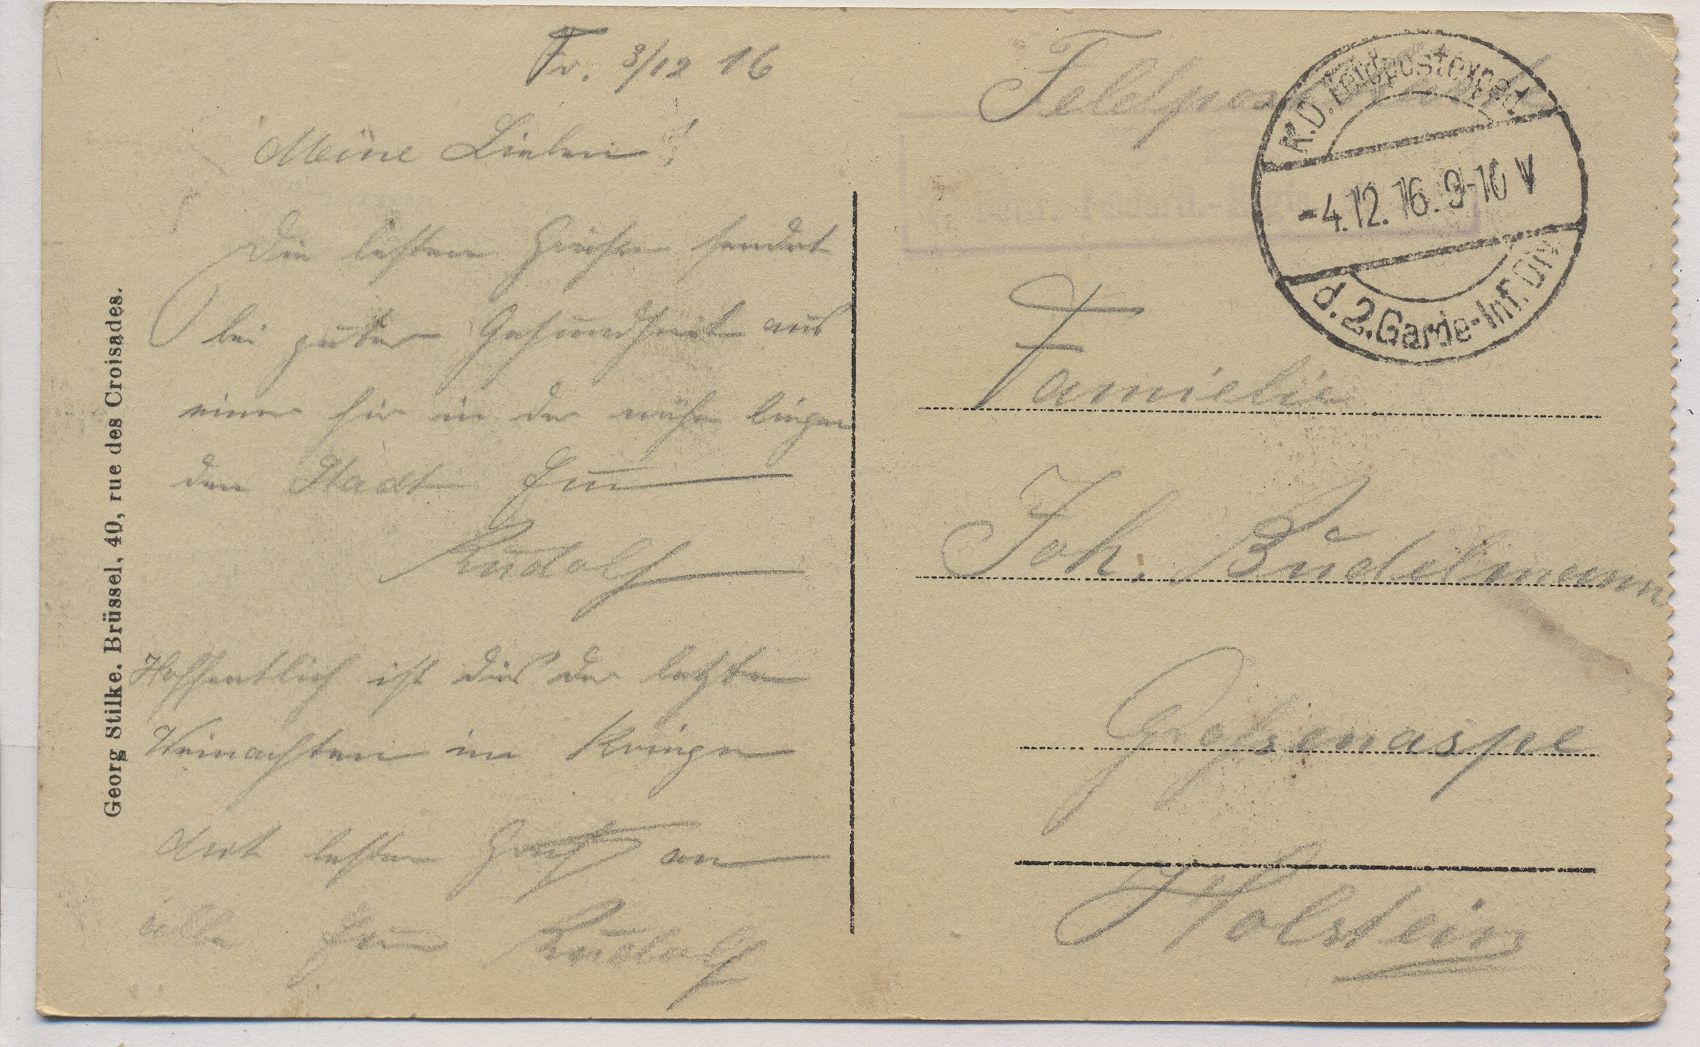 Fr. 3/12 16
Meine Lieben!
Die besten Grüße sendet
bei guter Gesundheit aus
einer hir in der nähe liegen
den Stadt Euer
Rudolf
Hoffentlich ist dies der letzte
Weinachten im Kriege
Mit besten Gruß an
alle Euer Rudolf
Feldpost
K.D. Feldpostexped.
-4.12.16. 9-10 V
d. 2. Garde-Inf. Div.
Familie
Joh. Büdelmann
Großenaspe
Holstein
Georg Stilke. Brüssel, 40, rue des Croisades.